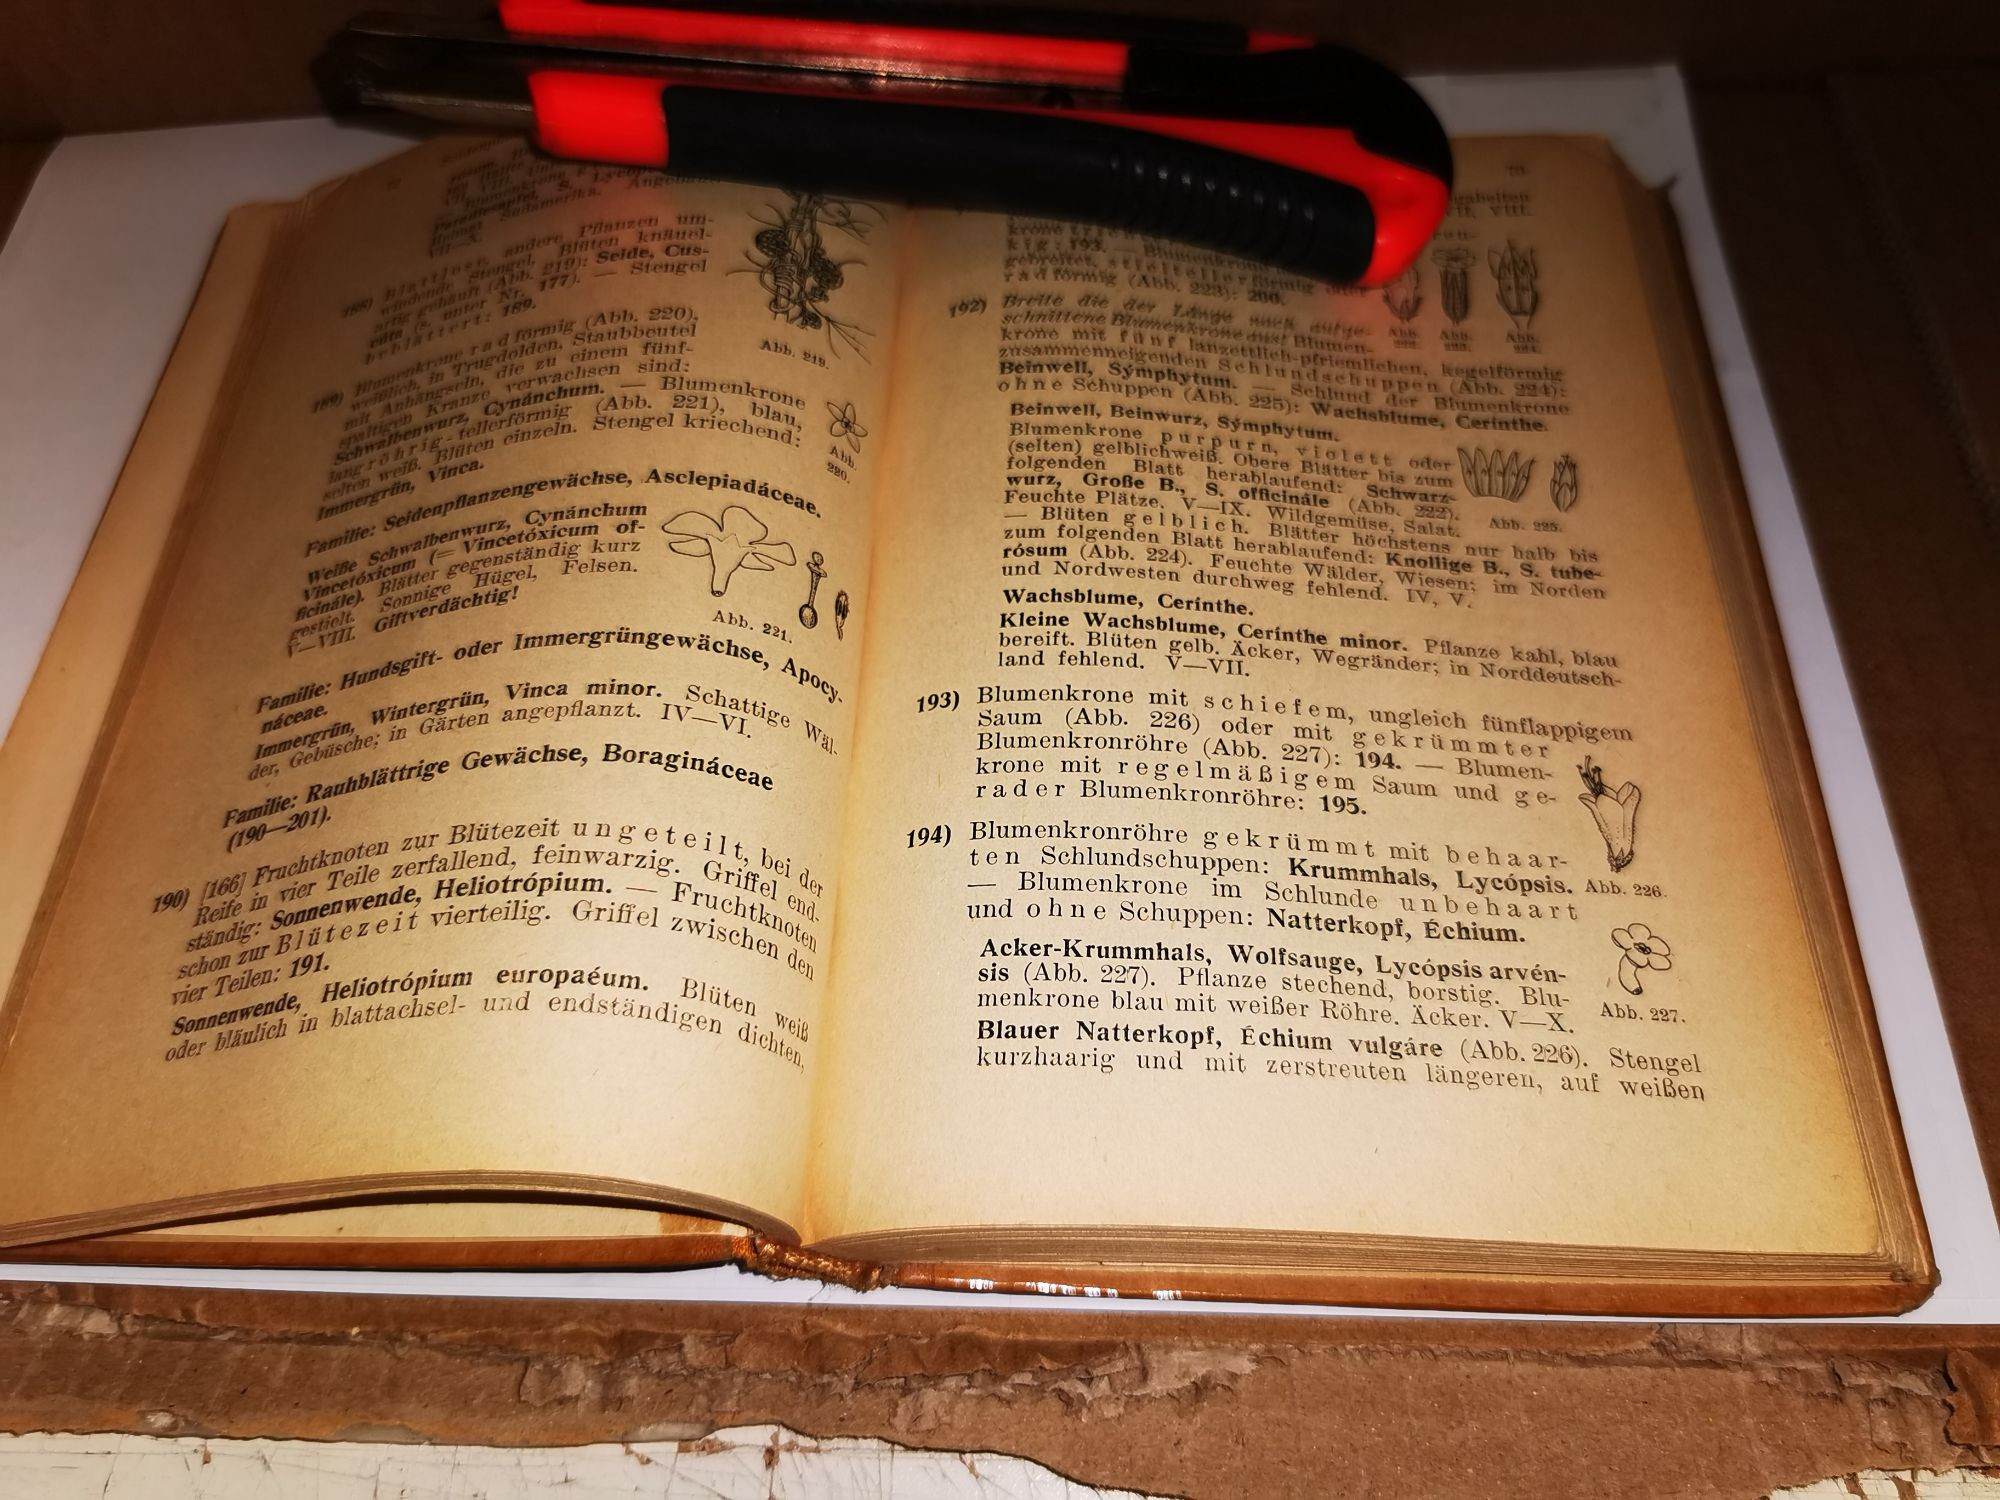 72
VII—X.
188) Blattlose, andere Pflanzen um-
windende Stengel, Blüten knäuel-
artig gehäuft (Abb. 219): Seide, Cus-
cúta (s. unter Nr. 177). — Stengel
beblättert: 189.
Abb. 219.
189) Blumenkrone radförmig (Abb. 220),
weißlich, in Trugdolden. Staubbeutel
mit Anhängseln, die zu einem fünf-
spaltigen Kranze verwachsen sind:
Schwalbenwurz, Cynánchum. — Blumenkrone
langröhrig-tellerförmig (Abb. 221), blau,
selten weiß. Blüten einzeln. Stengel kriechend:
Immergrün, Vinca.
Abb.
220.
Familie: Seidenpflanzengewächse, Asclepiadáceae.
Weiße Schwalbenwurz, Cynánchum
Vincetóxicum (= Vincetóxicum of-
ficinále). Blätter gegenständig kurz
gestielt. Sonnige Hügel, Felsen.
V—VIII. Giftverdächtig!
Abb. 221.
Familie: Hundsgift- oder Immergrüngewächse, Apocy-
náceae.
Immergrün, Wintergrün, Vinca minor. Schattige Wäl-
der, Gebüsche; in Gärten angepflanzt. IV—VI.
Familie: Rauhblättrige Gewächse, Boragináceae
(190—201).
190) [166] Fruchtknoten zur Blütezeit ungeteilt, bei der
Reife in vier Teile zerfallend, feinwarzig. Griffel end-
ständig: Sonnenwende, Heliotrópium. — Fruchtknoten
schon zur Blütezeit vierteilig. Griffel zwischen den
vier Teilen: 191.
Sonnenwende, Heliotrópium europaéum. Blüten weiß
oder bläulich in blattachsel- und endständigen dichten,
73
VII, VIII.
kig: 193. — Blumenkrone
gebreitet, stieltellerförmig oder
radförmig (Abb. 223): 200.
Abb.
222.
Abb.
223.
Abb.
224.
192) Breite die der Länge nach aufge-
schnittene Blumenkrone aus! Blumen-
krone mit fünf lanzettlich-pfriemlichen, kegelförmig
zusammenneigenden Schlundschuppen (Abb. 224):
Beinwell, Sýmphytum. — Schlund der Blumenkrone
ohne Schuppen (Abb. 225): Wachsblume, Cerínthe.
Beinwell, Beinwurz, Sýmphytum.
Blumenkrone purpurn, violett oder
(selten) gelblichweiß. Obere Blätter bis zum
folgenden Blatt herablaufend: Schwarz-
wurz, Große B., S. officinále (Abb. 222).
Feuchte Plätze. V—IX. Wildgemüse, Salat.
— Blüten gelblich. Blätter höchstens nur halb bis
zum folgenden Blatt herablaufend: Knollige B., S. tube-
rósum (Abb. 224). Feuchte Wälder, Wiesen; im Norden
und Nordwesten durchweg fehlend. IV, V.
Abb. 225.
Wachsblume, Cerínthe.
Kleine Wachsblume, Cerínthe minor. Pflanze kahl, blau
bereift. Blüten gelb. Äcker, Wegränder; in Norddeutsch-
land fehlend. V—VII.
193) Blumenkrone mit schiefem, ungleich fünflappigem
Saum (Abb. 226) oder mit gekrümmter
Blumenkronröhre (Abb. 227): 194. — Blumen-
krone mit regelmäßigem Saum und ge-
rader Blumenkronröhre: 195.
194) Blumenkronröhre gekrümmt mit behaar-
ten Schlundschuppen: Krummhals, Lycópsis.
— Blumenkrone im Schlunde unbehaart
und ohne Schuppen: Natterkopf, Échium.
Abb. 226.
Acker-Krummhals, Wolfsauge, Lycópsis arvén-
sis (Abb. 227). Pflanze stechend, borstig. Blu-
menkrone blau mit weißer Röhre. Äcker. V—X.
Abb. 227.
Blauer Natterkopf, Échium vulgáre (Abb. 226). Stengel
kurzhaarig und mit zerstreuten längeren, auf weißen